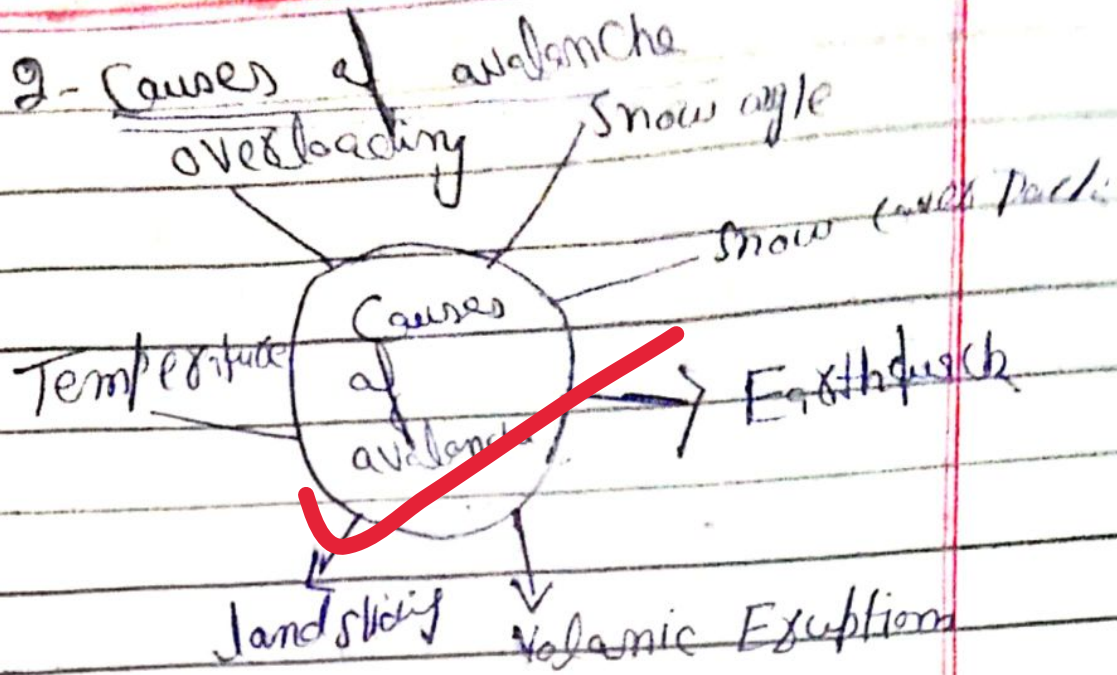 2- Causes of avalanche
overloading
Snow agle
Snow cover
Causes
of
avalanche
Temperature
Earthquack
landsliding
Volanic Eruption